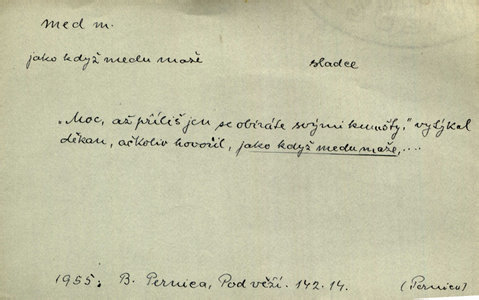 med m.
jako když medu maže sladce
„Moc, až příliš jen se obíráte svými kumšty," vytýkal
děkan, ačkoliv hovořil, jako když medu maže,....
1955. B. Pernica, Pod věží. 142.14. (Pernica)